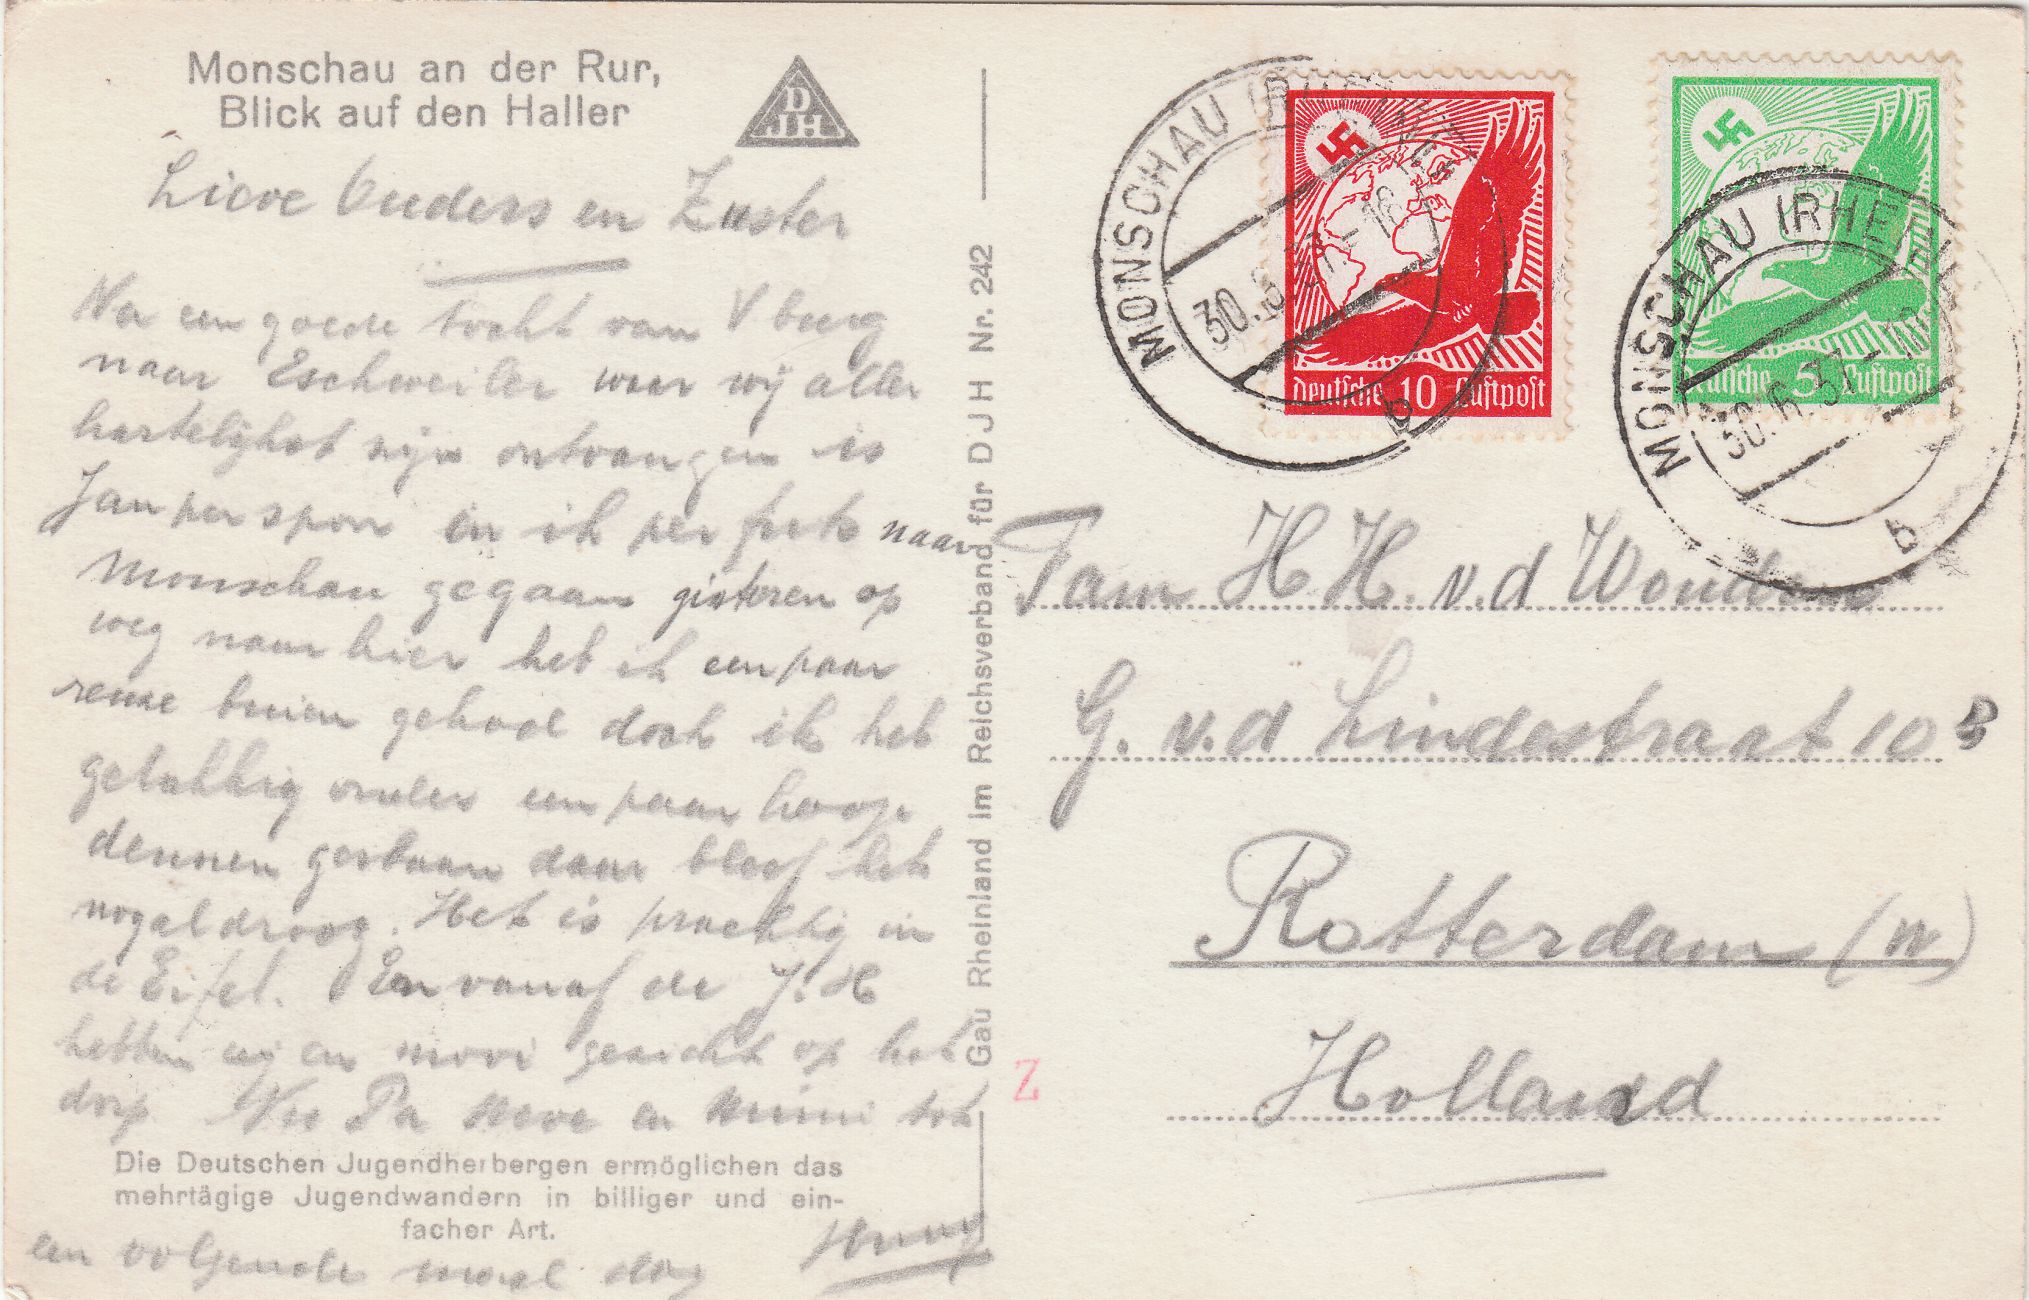 Monschau an der Rur,
Blick auf den Haller
D
JH
Lieve Ouders en Zuster
Na een goede tocht van V burg
naar Eschweiler waar wij aller
hartelijkst zijn ontvangen is
Jan per spoor en ik per fiets naar
Monschau gegaan gisteren op
weg naar hier heb ik een paar
buien gehad doch ik heb
gelukkig onder een paar hooge
dennen gestaan daar bleef het
nogal droog. Het is prachtig in
de Eifel. En vanaf de J.H
hebben wij een mooi gezicht op het
dorp Nu Pa Moe en Mimi tot
Die Deutschen Jugendherbergen ermöglichen das
mehrtägige Jugendwandern in billiger und ein-
facher Art.
een volgende maal dag Henny
Gau Rheinland im Reichsverband für DJH Nr. 242
MONSCHAU (RHEINL
30.6.37.-18
b
Deutsche 10 Luftpost
MONSCHAU (RHEINL
30.6.37-18
b
Deutsche 5 Luftpost
Fam H H. v.d Wouden
G. v.d Lindestraat 10 B
Rotterdam (N)
Holland
Z